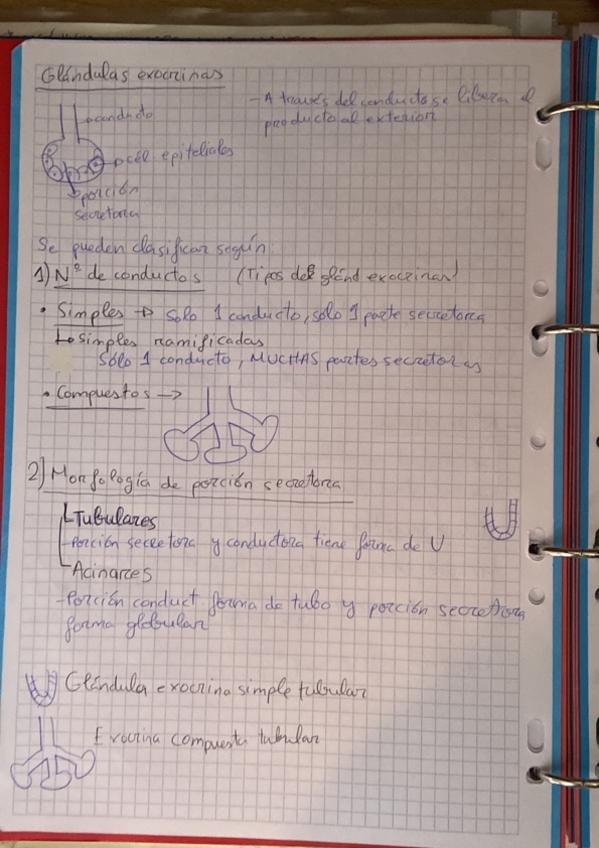 Glándulas exocrinas
- A través del conducto se libera el
producto al exterior
conducto
cél epiteliales
porción
secretora
Se pueden clasificar según:
1) Nº de conductos (Tipos de glánd exocrinas)
• Simples → solo 1 conducto, solo 1 parte secretora
↳ simples ramificadas
Sólo 1 conducto, MUCHAS partes secretoras
• Compuestos →
2) Morfología de porción secretora
Tubulares
- Porción secretora y conductora tiene forma de U
Acinares
- Porción conduct forma de tubo y porción secretora
forma globular
Glándula exocrina simple tubular
Exocrina compuesta tubular